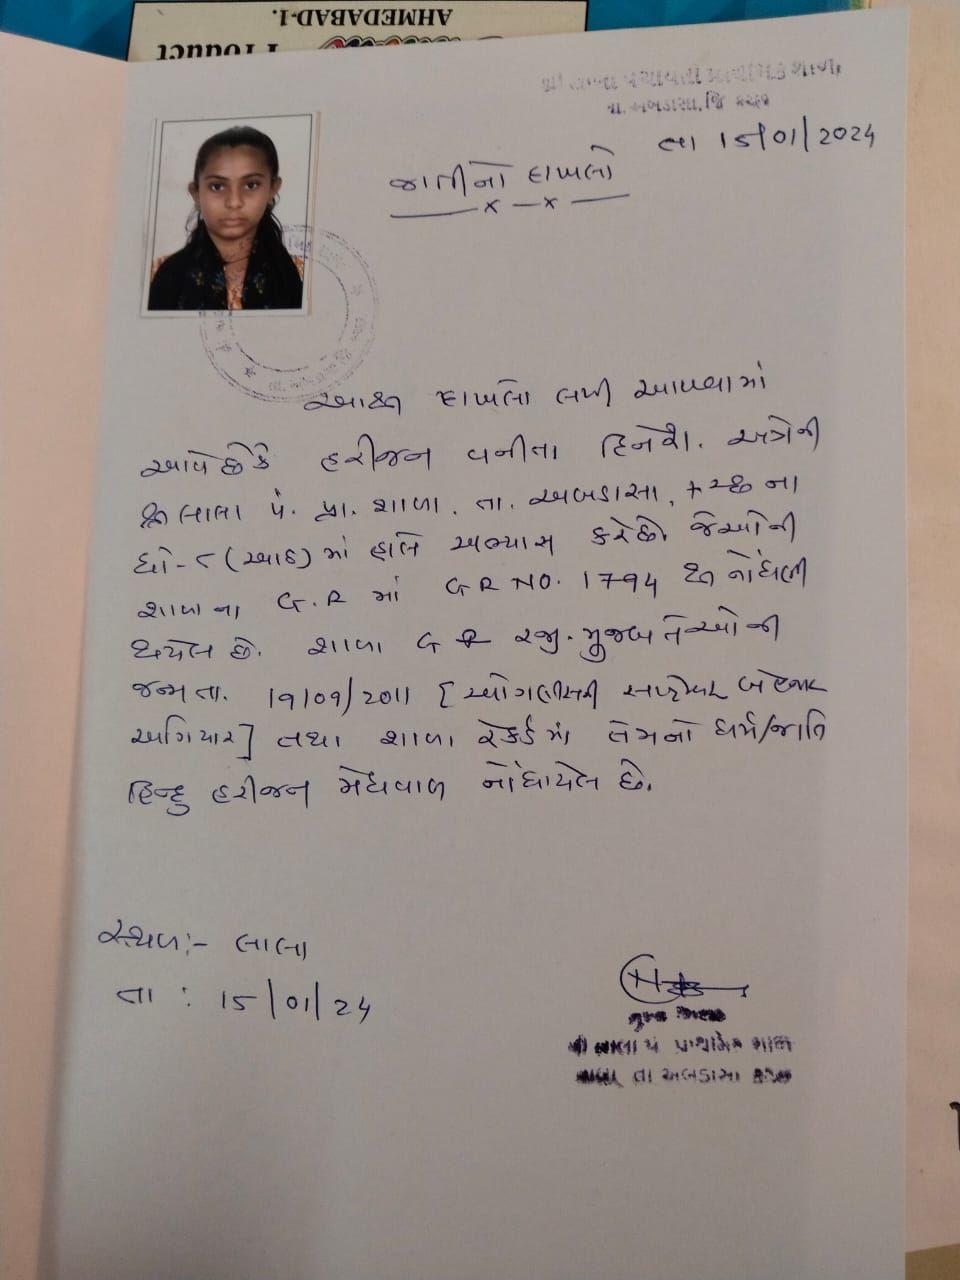 AHMEDABAD-1.
Product
તા. અબડાસા, જિ કચ્છ
તા 15/01/2024
જાતીનો દાખલો
આથી દાખલો લખી આપવામાં
આવે છે કે હરીજન વનીતા દિનેશ. અત્રેની
શ્રી લાલા પં. પ્રા. શાળા. તા. અબડાસા, કચ્છ ના
ધો-૮ (આઠ) માં હાલે અભ્યાસ કરે છે. જેઓની
શાળા ના G.R માં GR NO. 1794 થી નોંધણી
થયેલ છે. શાળા G R રજી. મુજબ તેઓની
જન્મ તા. 19/09/2011 [ઓગણીસમી સપ્ટેમ્બર બે હજાર
અગિયાર] તથા શાળા રેકર્ડમાં તેમનો ધર્મ/જાતિ
હિન્દુ હરીજન મેઘવાળ નોંધાયેલ છે.
સ્થળ:- લાલા
તા : 15/01/24
શ્રી લાલા પં પ્રાથમિક શાળા
તા અબડાસા કચ્છ